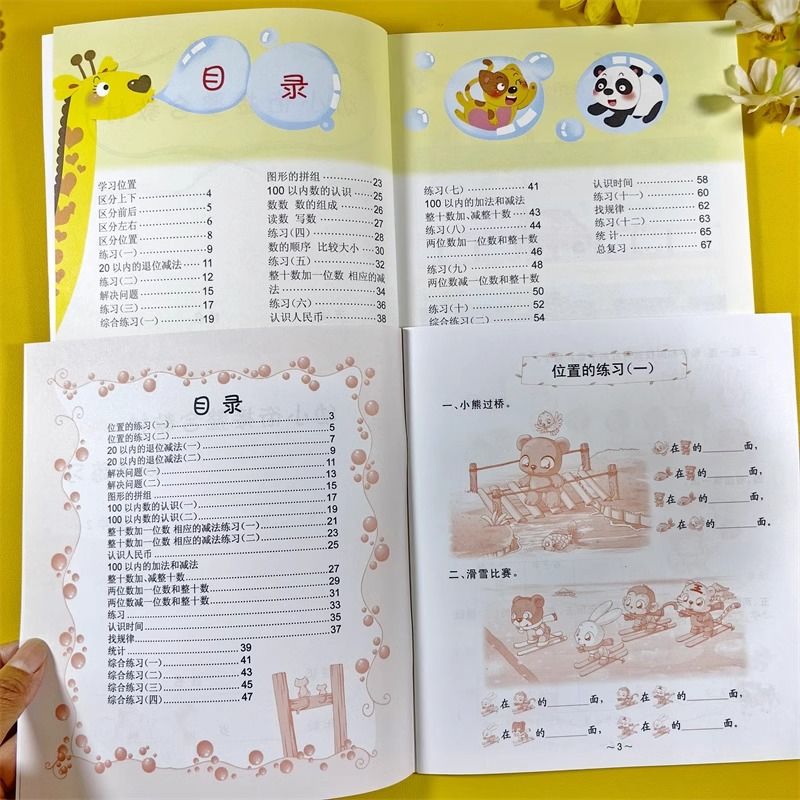 目 录
学习位置
区分上下 4
区分前后 5
区分左右 6
区分位置 8
练习(一) 9
20以内的退位减法 11
练习(二) 12
解决问题 15
练习(三) 17
综合练习(一) 19
图形的拼组 23
100以内数的认识 25
数数 数的组成 26
读数 写数 27
练习(四) 28
数的顺序 比较大小 30
练习(五) 32
整十数加一位数 相应的减
法 34
练习(六) 36
认识人民币 38
练习(七) 41
100以内的加法和减法
整十数加、减整十数 43
练习(八) 44
两位数加一位数和整十数
46
练习(九) 48
两位数减一位数和整十数
50
练习(十) 52
综合练习(二) 54
认识时间 58
练习(十一) 60
找规律 62
练习(十二) 63
统 计 65
总复习 67
目 录
位置的练习(一) 3
位置的练习(二) 5
20以内的退位减法(一) 7
20以内的退位减法(二) 9
解决问题(一) 11
解决问题(二) 13
图形的拼组 15
100以内数的认识(一) 17
100以内数的认识(二) 19
整十数加一位数 相应的减法练习(一) 21
整十数加一位数 相应的减法练习(二) 23
认识人民币 25
100以内的加法和减法
整十数加、减整十数 27
两位数加一位数和整十数 29
两位数减一位数和整十数 31
练习 33
认识时间 35
找规律 37
统计 39
综合练习(一) 41
综合练习(二) 43
综合练习(三) 45
综合练习(四) 47
位置的练习(一)
一、小熊过桥。
在 的 面,
在 的 面,
在 的 面,
在 的 面。
二、滑雪比赛。
在 的 面, 在 的 面,
在 的 面, 在 的 面。
~3~